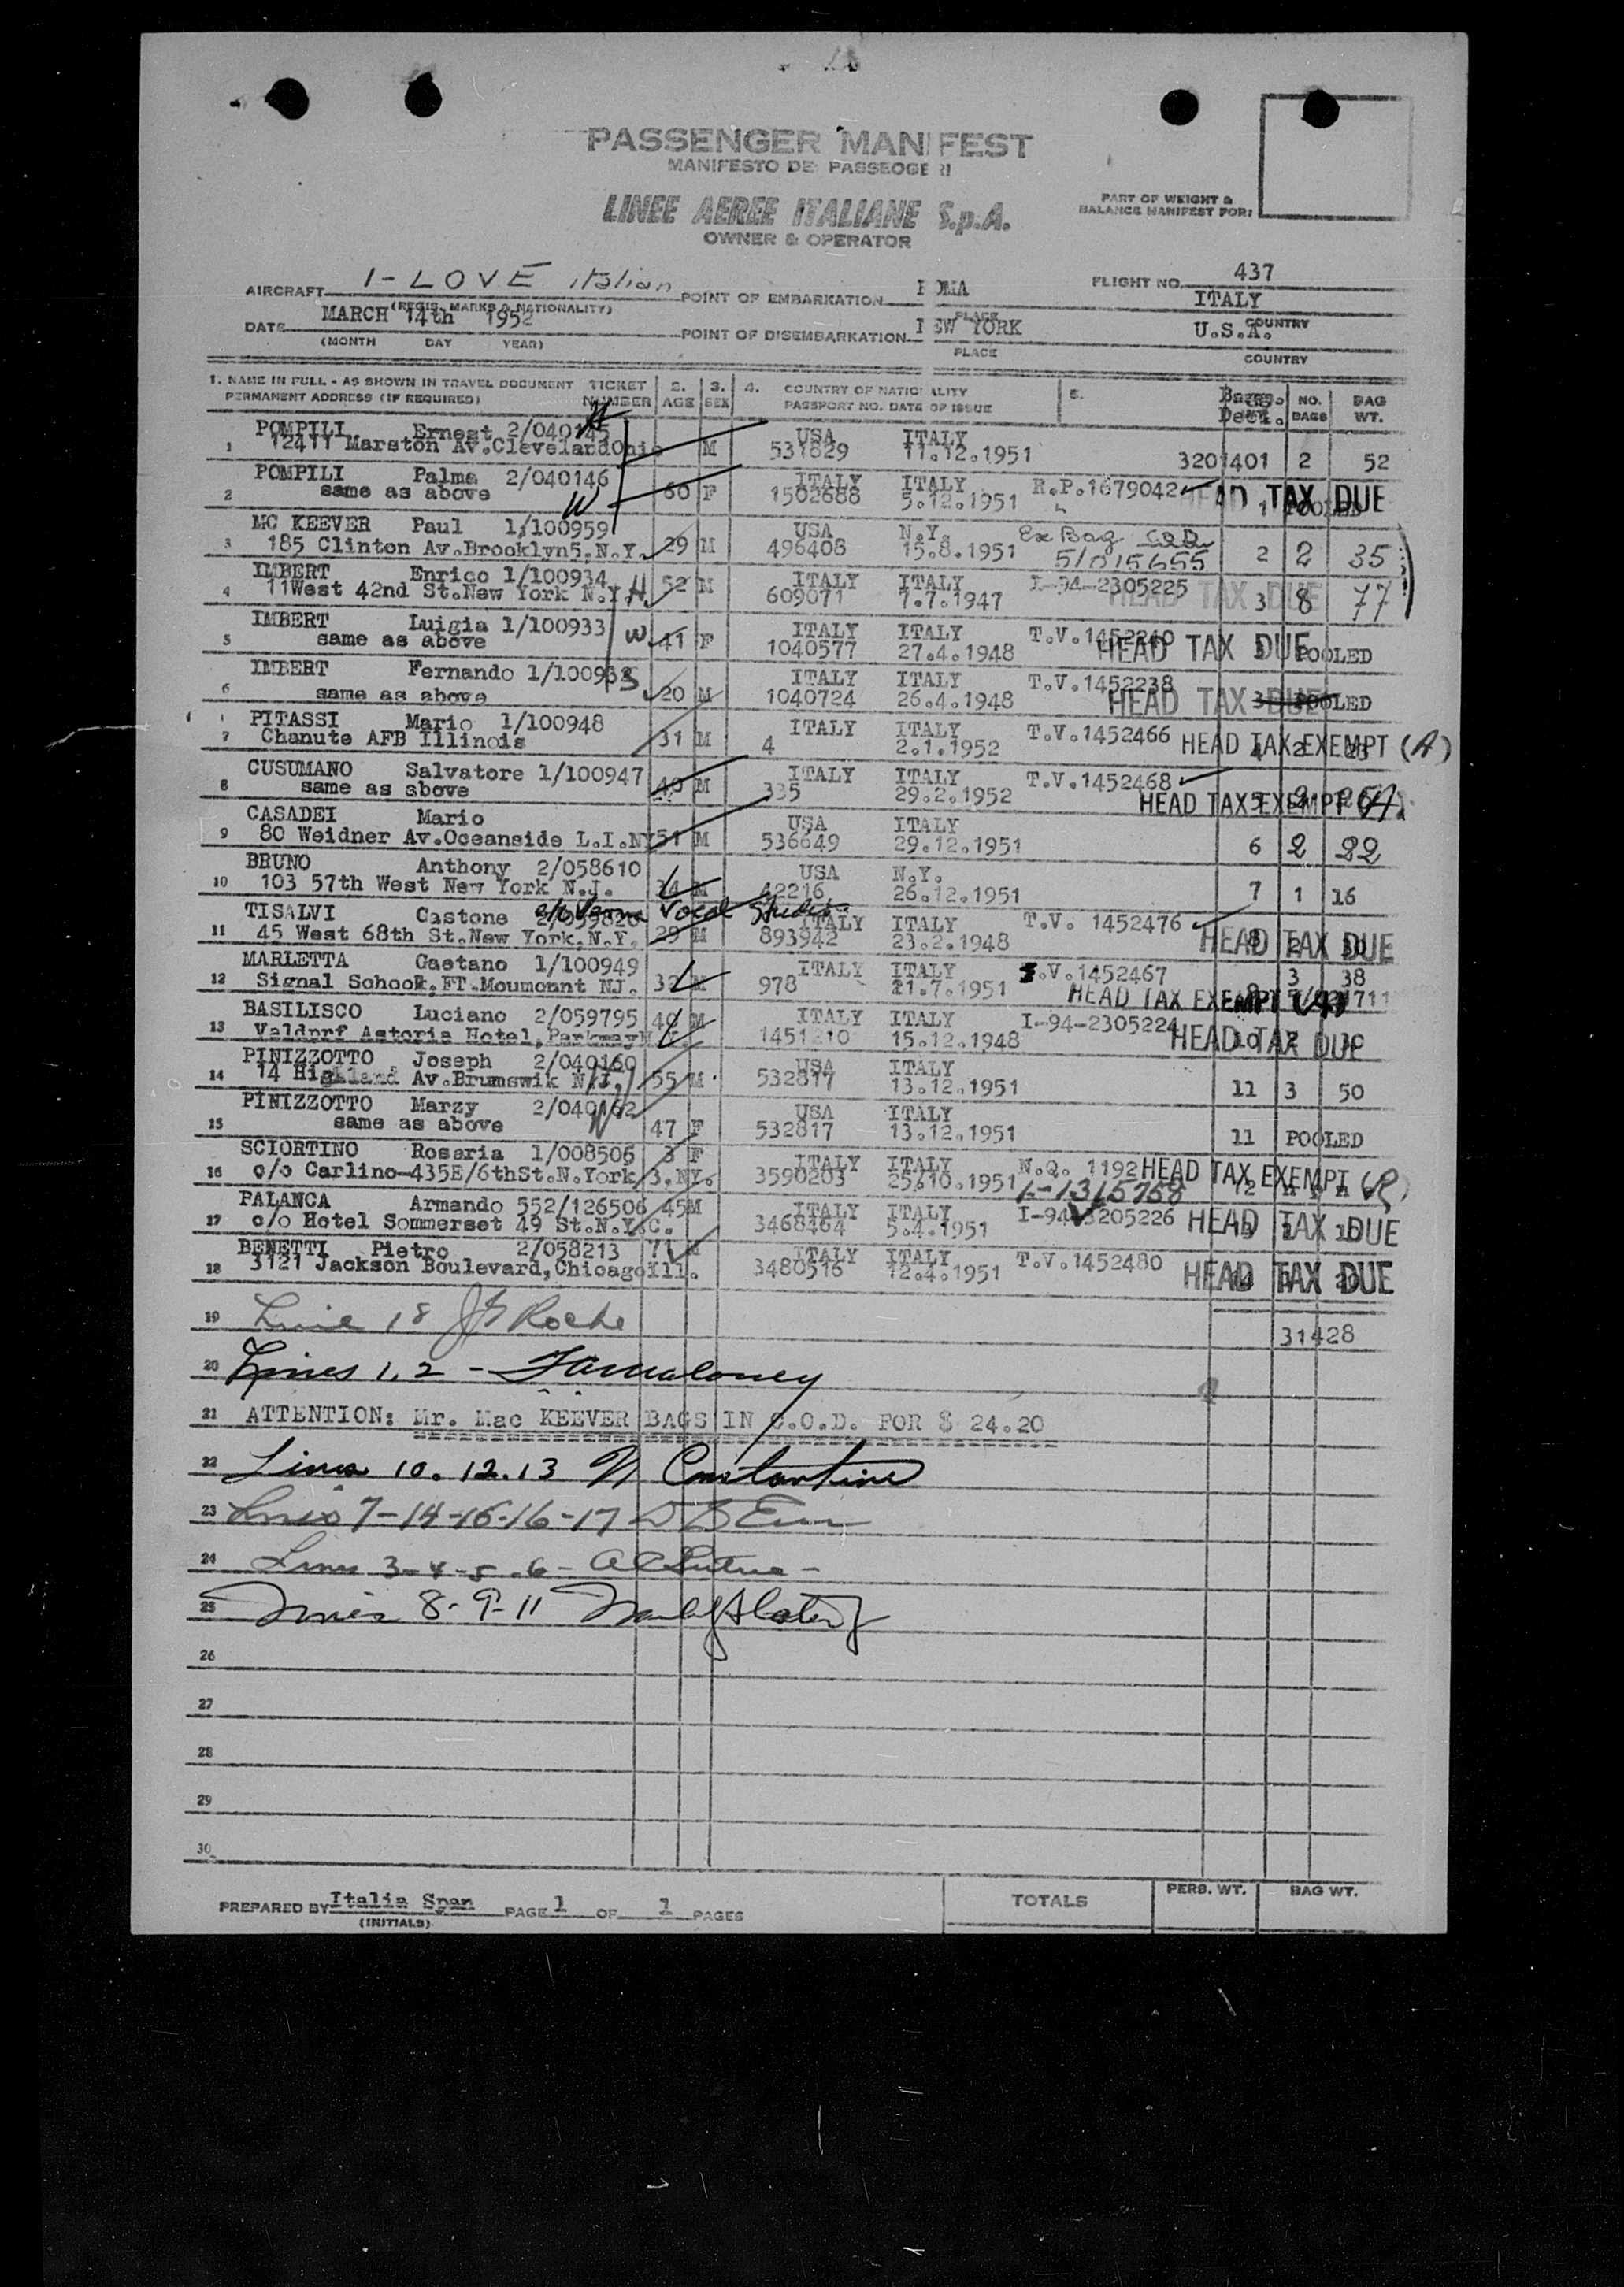 PASSENGER MANIFEST
MANIFESTO DEI PASSEGGERI
LINEE AEREE ITALIANE S.p.A.
OWNER & OPERATOR
PART OF WEIGHT &
BALANCE MANIFEST FOR:
AIRCRAFT I-LOVE italian POINT OF EMBARKATION ROMA FLIGHT NO. 437
(REGIS. MARKS & NATIONALITY) PLACE ITALY COUNTRY
DATE MARCH 14th 1952 POINT OF DISEMBARKATION NEW YORK U.S.A.
(MONTH DAY YEAR) PLACE COUNTRY
1. NAME IN FULL - AS SHOWN IN TRAVEL DOCUMENT TICKET 2. 3. 4. COUNTRY OF NATIONALITY 5. NO. BAG
PERMANENT ADDRESS (IF REQUIRED) NUMBER AGE SEX PASSPORT NO. DATE OF ISSUE BAGS WT.
POMPILI Ernest 2/040145 USA ITALY
1 12411 Marston Av.Cleveland Ohio M 531829 11.12.1951 3201401 2 52
POMPILI Palma 2/040146 ITALY ITALY R.P.1679042
2 same as above W 60 F 1502688 5.12.1951 1 POOLED HEAD TAX DUE
MC KEEVER Paul 1/100959 USA N.Y. Ex Bag COD
3 185 Clinton Av.Brooklyn5.N.Y. 29 M 496408 15.8.1951 51015655 2 2 35
IMBERT Enrico 1/100934 ITALY ITALY I-94-2305225
4 11West 42nd St.New York N.Y. H 52 M 609071 7.7.1947 HEAD TAX DUE 3 8 77
IMBERT Luigia 1/100933 ITALY ITALY T.V.1452240
5 same as above W 41 F 1040577 27.4.1948 HEAD TAX DUE 3 POOLED
IMBERT Fernando 1/100932 ITALY ITALY T.V.1452238
6 same as above S 20 M 1040724 26.4.1948 HEAD TAX DUE 3 POOLED
PITASSI Mario 1/100948 ITALY ITALY T.V.1452466
7 Chanute AFB Illinois 31 M 4 2.1.1952 HEAD TAX EXEMPT (A)
CUSUMANO Salvatore 1/100947 ITALY ITALY T.V.1452468
8 same as above 40 M 335 29.2.1952 HEAD TAX EXEMPT (A)
CASADEI Mario USA ITALY
9 80 Weidner Av.Oceanside L.I.NY 51 M 536649 29.12.1951 6 2 22
BRUNO Anthony 2/058610 USA N.Y.
10 103 57th West New York N.J. 34 M 42216 26.12.1951 7 1 16
TISALVI Castone 2/059820 Vocal Studio ITALY ITALY T.V. 1452476
11 45 West 68th St.New York.N.Y. 29 M 893942 23.2.1948 HEAD TAX DUE
MARLETTA Gaetano 1/100949 ITALY ITALY T.V.1452467 3 38
12 Signal School,FT.Moumonnt NJ. 32 M 978 21.7.1951 HEAD TAX EXEMPT (A)
BASILISCO Luciano 2/059795 ITALY ITALY I-94-2305224
13 Valdorf Astoria Hotel, M 15.12.1948 HEAD TAX DUE
PINIZZOTTO Joseph 2/040160 USA ITALY
14 14 Highland Av.Brumswik N.J. 55 M 532817 13.12.1951 11 3 50
PINIZZOTTO Marzy 2/040162 USA ITALY
15 same as above W 47 F 532817 13.12.1951 11 POOLED
SCIORTINO Rosaria 1/008506 3 F ITALY ITALY N.Q. 1192 HEAD TAX EXEMPT
16 c/o Carlino-435E/6thSt.N.York 3.NY. 3590203 25.10.1951 12
PALANCA Armando 552/126506 45 M ITALY ITALY I-94-3205226
17 c/o Hotel Sommerset 49 St.N.Y.C. 3468464 5.4.1951 HEAD TAX DUE
BENETTI Pietro 2/058213 71 ITALY ITALY T.V.1452480
18 3121 Jackson Boulevard,Chicago Ill. 3480516 12.4.1951 HEAD TAX DUE
19 Line 18 Roche
31428
20 Lines 1, 2 - Maloney
21 ATTENTION: Mr. Mac KEEVER BAGS IN C.O.D. FOR $ 24.20
22 Lines 10. 12. 13 Constantine
23 Lines 7-14-15-16-17
24 Lines 3-4-5-6-
25 Lines 8-9-11
26
27
28
29
30
PREPARED BY Italia Span PAGE 1 OF 1 PAGES TOTALS PERS. WT. BAG WT.
(INITIALS)